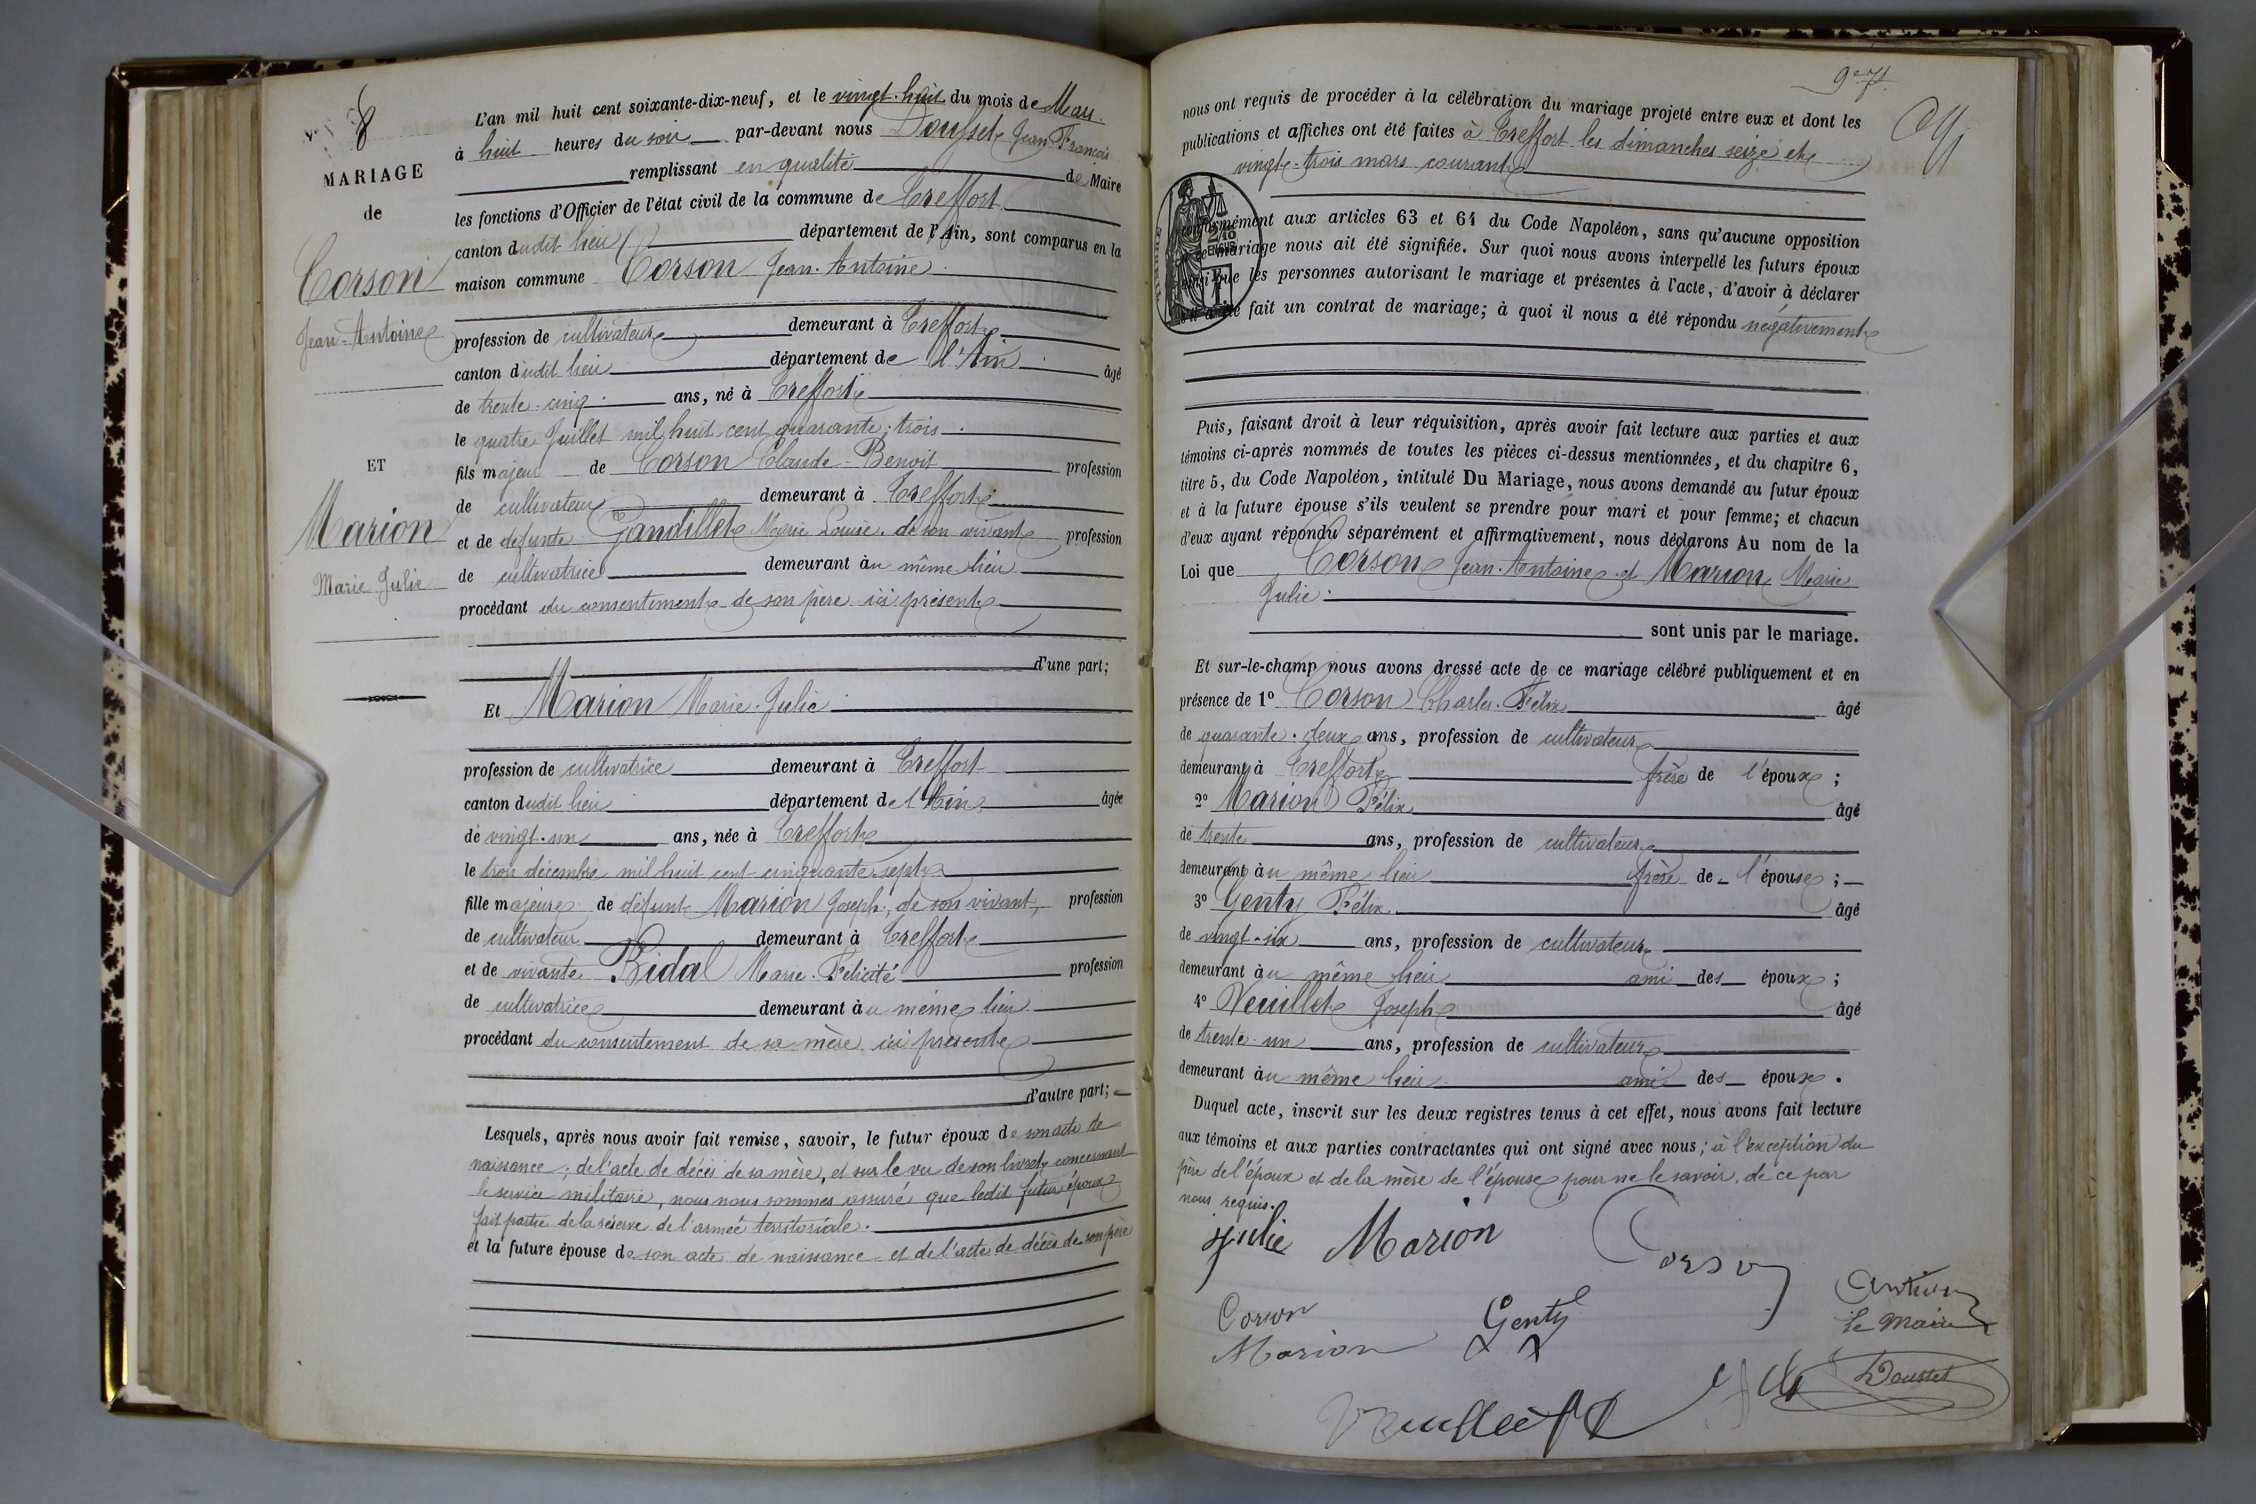 N° 8
MARIAGE
de
Corson
Jean-Antoine
ET
Marion
Marie Julie
L'an mil huit cent soixante-dix-neuf, et le vingt-huit du mois de Mars
à huit heures du soir par-devant nous Dousset Jean François
remplissant en qualité de Maire
les fonctions d'Officier de l'état civil de la commune de Treffort
canton dudit lieu département de l'Ain, sont comparus en la
maison commune Corson Jean-Antoine
profession de cultivateur demeurant à Treffort
canton dudit lieu département de l'Ain âgé
de trente-cinq ans, né à Treffort
le quatre Juillet mil huit cent quarante-trois
fils majeur de Corson Claude-Benoit profession
de cultivateur demeurant à Treffort
et de défunte Gandillet Marie Louise de son vivant profession
de cultivatrice demeurant au même lieu
procédant du consentement de son père ici présent
d'une part;
Et Marion Marie-Julie
profession de cultivatrice demeurant à Treffort
canton dudit lieu département de l'Ain âgée
de vingt-un ans, née à Treffort
le trois décembre mil huit cent cinquante-sept
fille majeure de défunt Marion Joseph, de son vivant, profession
de cultivateur demeurant à Treffort
et de vivante Ridal Marie-Félicité profession
de cultivatrice demeurant au même lieu
procédant du consentement de sa mère ici présente
d'autre part;
Lesquels, après nous avoir fait remise, savoir, le futur époux de son acte de
naissance; de l'acte de décès de sa mère, et sur le vu de son livret concernant
le service militaire, nous nous sommes assuré que ledit futur époux
fait partie de la réserve de l'armée territoriale.
et la future épouse de son acte de naissance et de l'acte de décès de son père
nous ont requis de procéder à la célébration du mariage projeté entre eux et dont les
publications et affiches ont été faites à Treffort les dimanches seize et
vingt-trois mars courant
conformément aux articles 63 et 64 du Code Napoléon, sans qu'aucune opposition
à ce mariage nous ait été signifiée. Sur quoi nous avons interpellé les futurs époux
ainsi que les personnes autorisant le mariage et présentes à l'acte, d'avoir à déclarer
s'il a été fait un contrat de mariage; à quoi il nous a été répondu négativement
Puis, faisant droit à leur réquisition, après avoir fait lecture aux parties et aux
témoins ci-après nommés de toutes les pièces ci-dessus mentionnées, et du chapitre 6,
titre 5, du Code Napoléon, intitulé Du Mariage, nous avons demandé au futur époux
et à la future épouse s'ils veulent se prendre pour mari et pour femme; et chacun
d'eux ayant répondu séparément et affirmativement, nous déclarons Au nom de la
Loi que Corson Jean-Antoine et Marion Marie
Julie
sont unis par le mariage.
Et sur-le-champ nous avons dressé acte de ce mariage célébré publiquement et en
présence de 1° Corson Charles-Félix âgé
de quarante-deux ans, profession de cultivateur
demeurant à Treffort frère de l'époux;
2° Marion Félix âgé
de trente ans, profession de cultivateur
demeurant au même lieu frère de l'épouse;
3° Genty Félix âgé
de vingt-six ans, profession de cultivateur
demeurant au même lieu ami des époux;
4° Veuillet Joseph âgé
de trente-un ans, profession de cultivateur
demeurant au même lieu ami des époux.
Duquel acte, inscrit sur les deux registres tenus à cet effet, nous avons fait lecture
aux témoins et aux parties contractantes qui ont signé avec nous; à l'exception du
père de l'époux et de la mère de l'épouse pour ne le savoir, de ce par
nous requis.
Julie Marion Corson
Corson Genty
Marion le Maire
Dousset